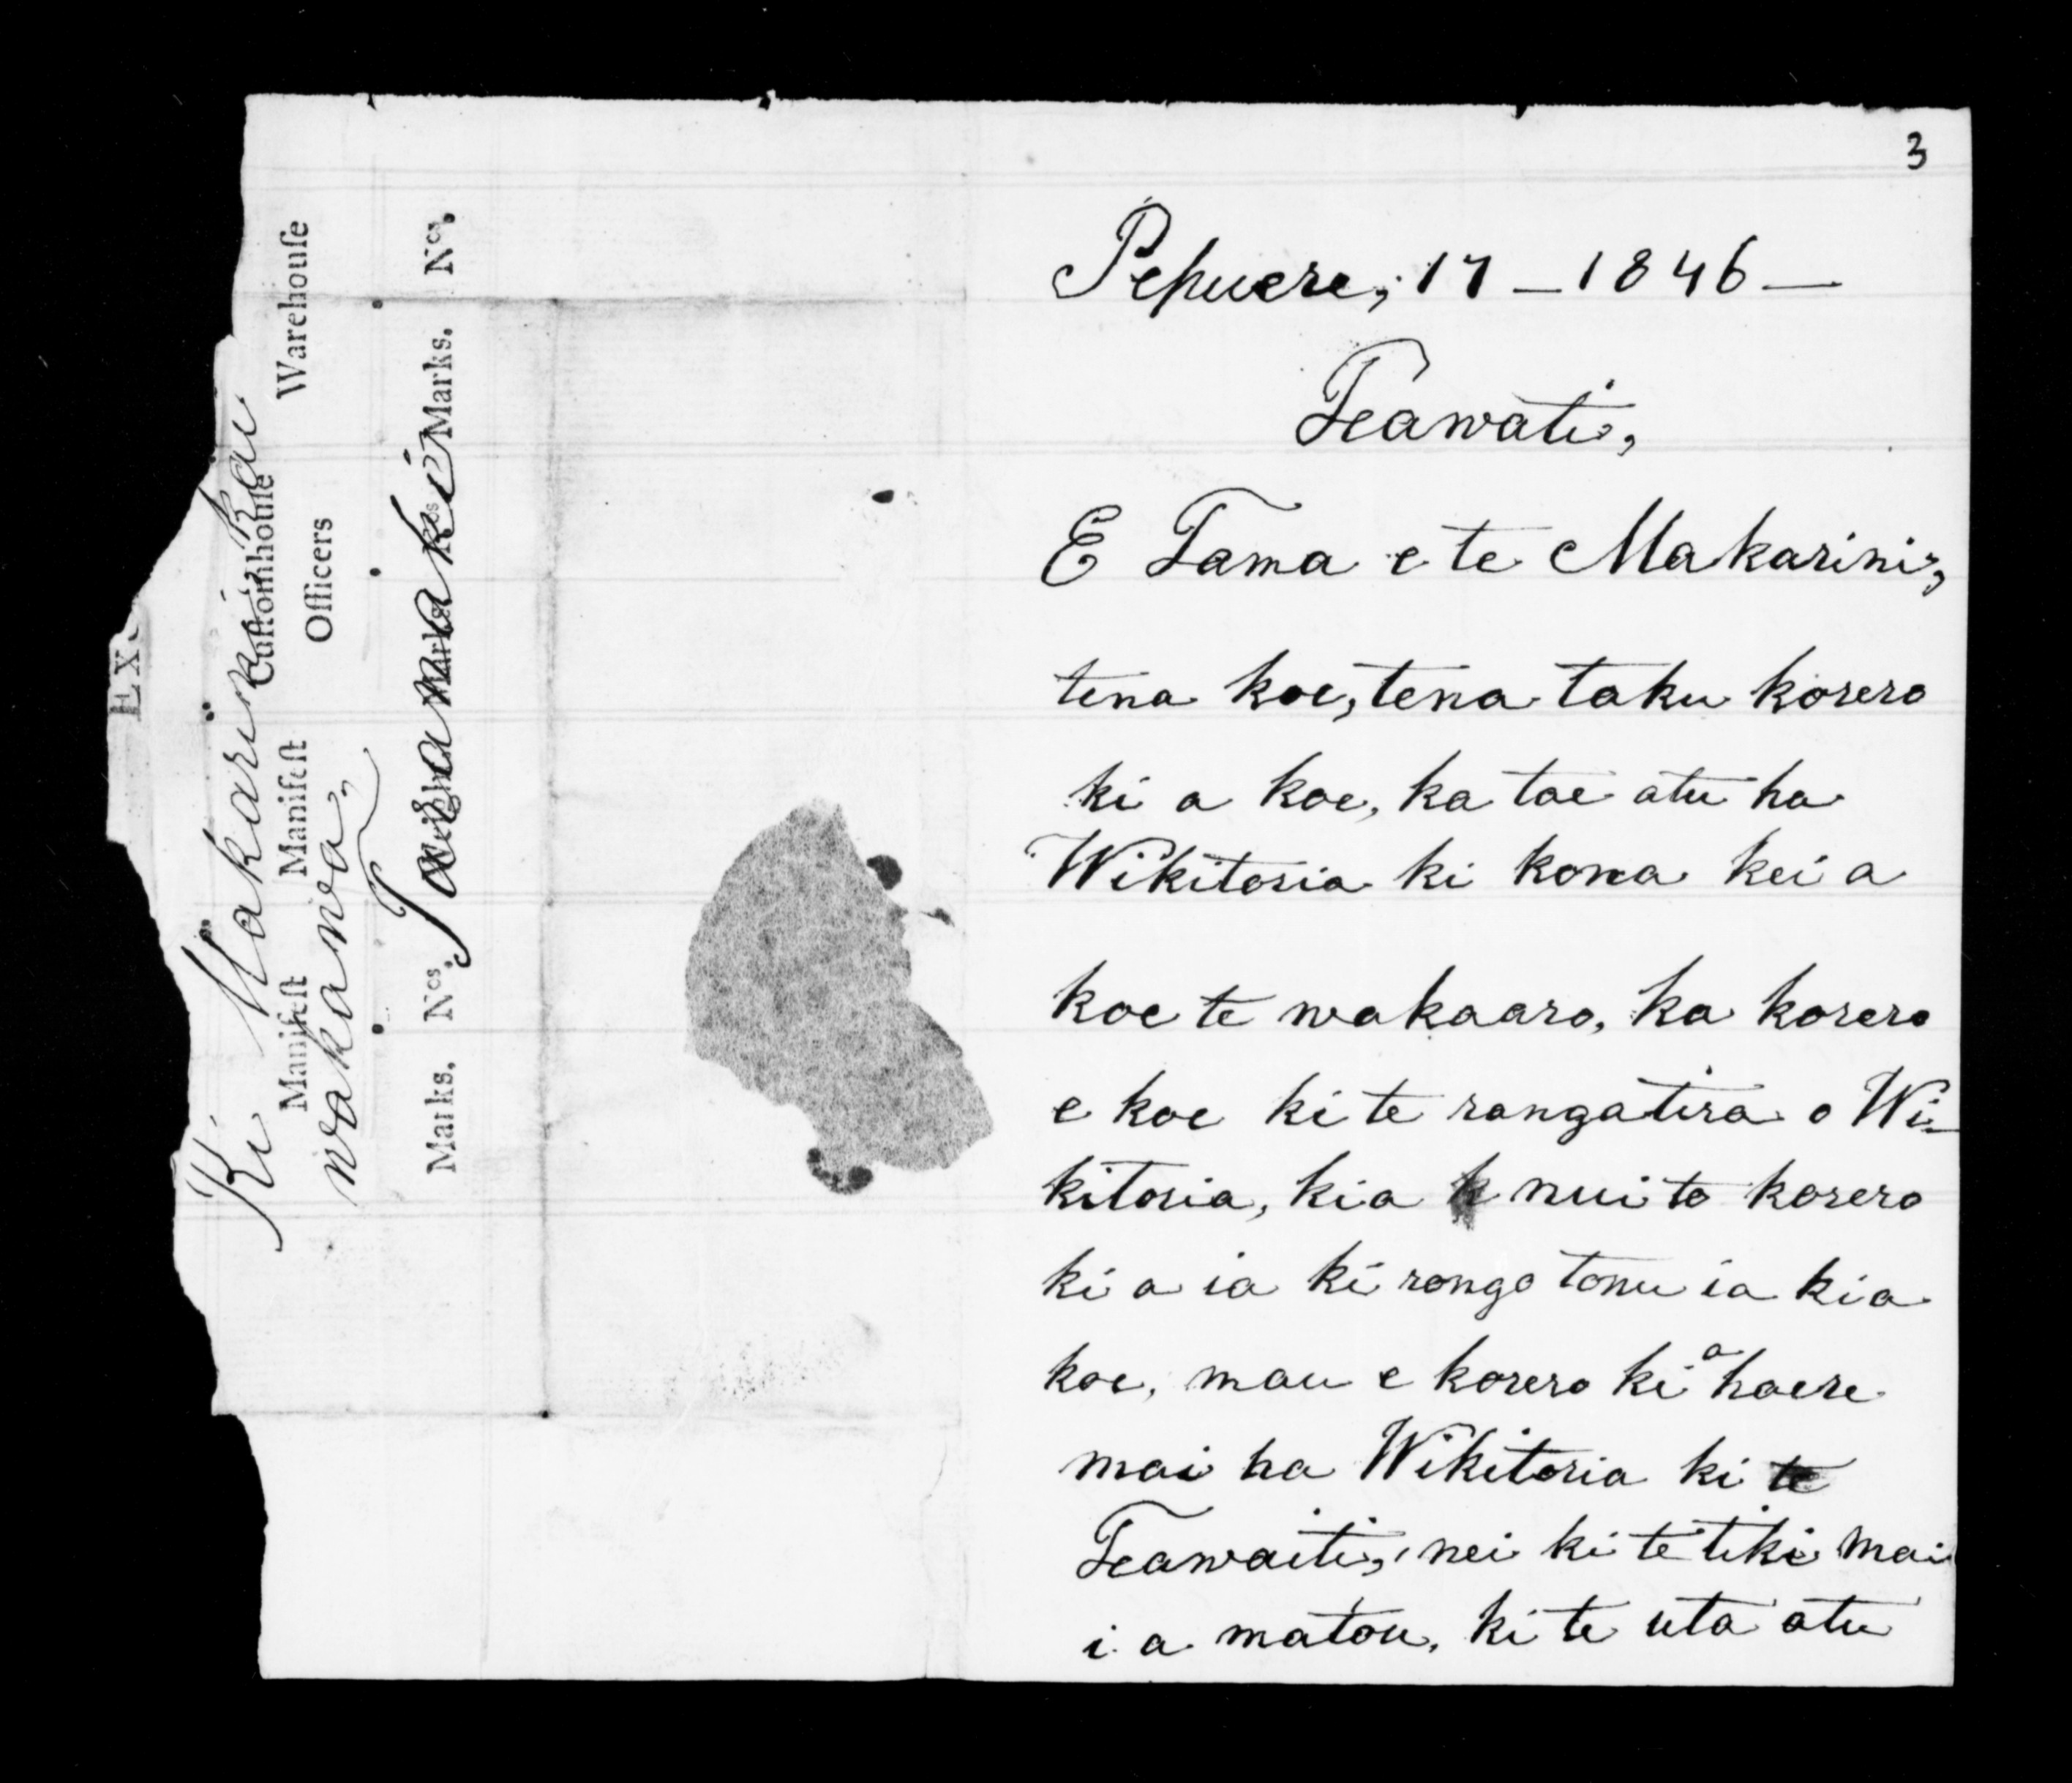 3
Pepuere, 17 – 1846 –
Teawati,
E Tama e te Makarini,
tena koe, tena taku korero
ki a koe, ka tae atu ha
Wikitoria ki kona kei a
koe te wakaaro, ka korero
e koe ki te rangatira o Wi-
kitoria, kia k nui to korero
ki a ia ki rongo tonu ia kia
koe, mau e korero ki a haere
mai ha Wikitoria ki te
Teawaiti, nei ki te tiki mai
i a matou, ki te uta atu
EX
Ki Makarini, kai
Manifeſt Manifeſt Cuſtomhouſe Warehouſe
Officers
wakawa,
Taranaki
Marks. Nos. Weight Marks Nos Marks. Nos.